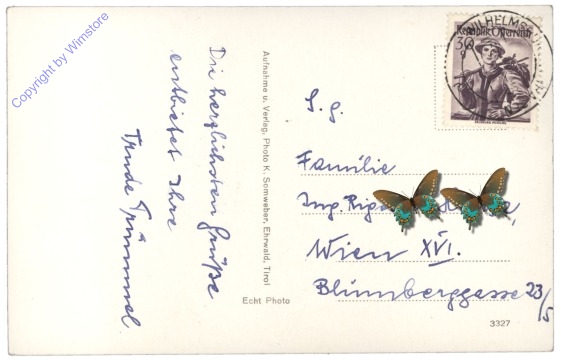 Copyright by Wimstore
Die herzlichsten Grüße
entbietet Ihre
Trude
Aufnahme u. Verlag, Photo K. Somweber, Ehrwald, Tirol
Echt Photo
WILHELMSBURG
Republik Österreich
30
S. g.
Familie
Ing.
Wien XVI.
Blumberggasse 23/5
3327